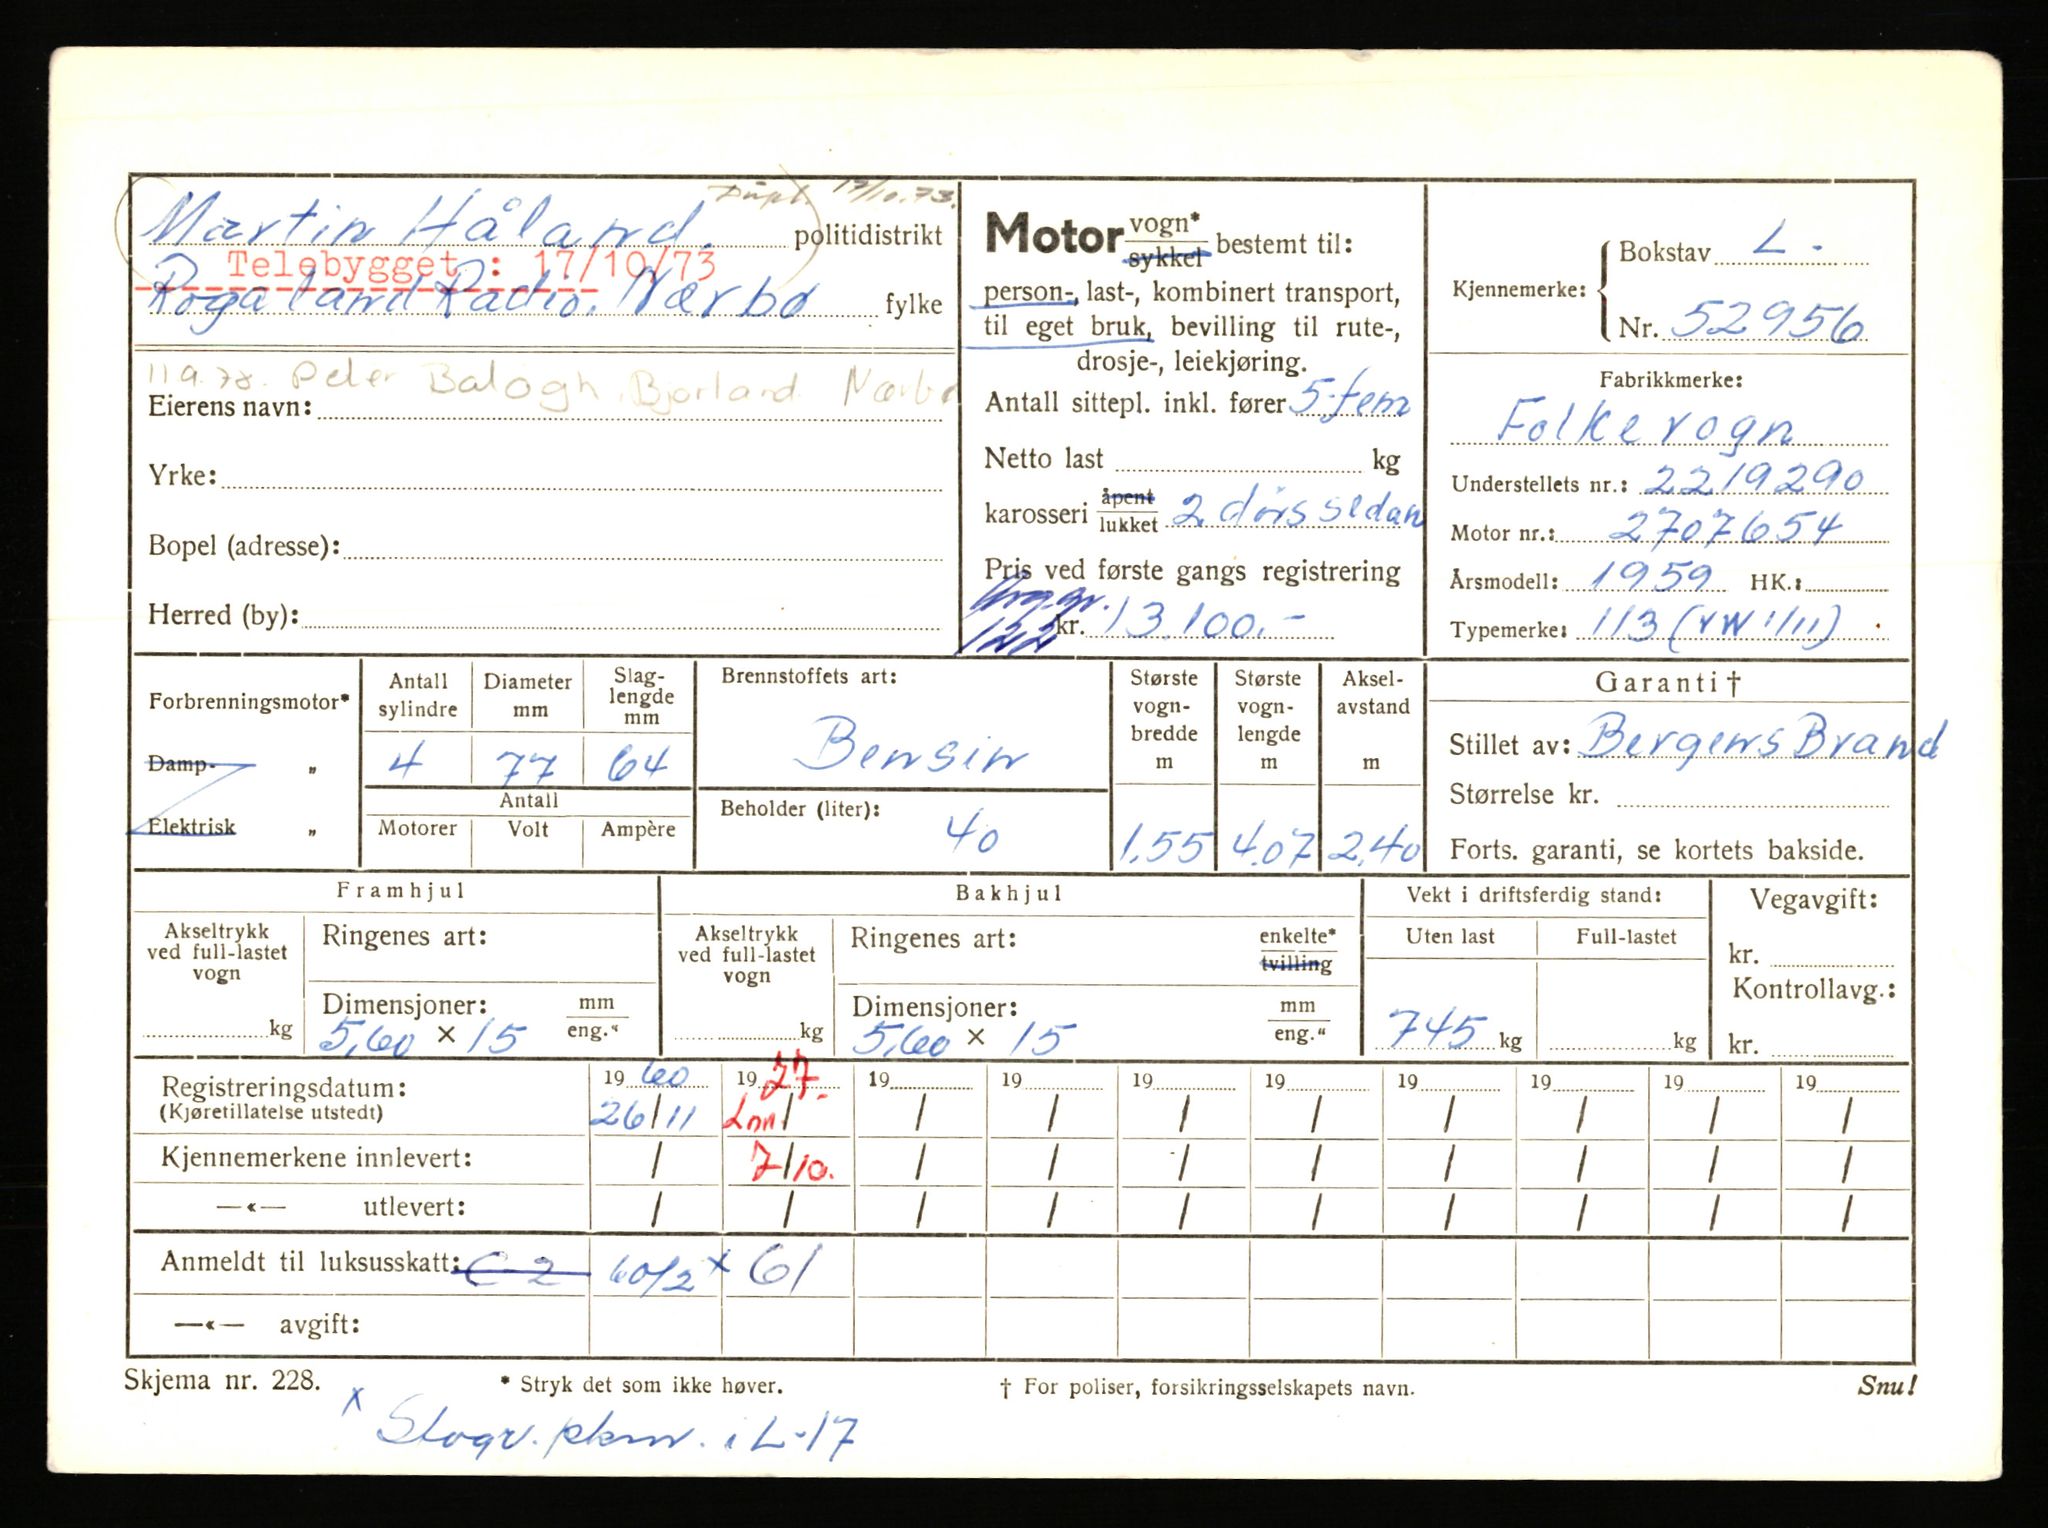 Dupl. 17/10.73.
Martin Håland. politidistrikt
Telebygget : 17/10/73
Rogaland Radio. Nærbø fylke
11.9.78. Peter Balogh, Bjorland Nærbø
Eierens navn:
Yrke:
Bopel (adresse):
Herred (by):
Motor vogn* sykkel bestemt til:
person-, last-, kombinert transport,
til eget bruk, bevilling til rute-,
drosje-, leiekjøring.
Antall sittepl. inkl. fører 5-fem
Netto last kg
karosseri åpent lukket 2 dørs sedan
Pris ved første gangs registrering
kr. 13.100.-
122
Kjennemerke: Bokstav L.
Nr. 52956
Fabrikkmerke:
Folkevogn
Understellets nr.: 2219290
Motor nr.: 2707654
Årsmodell: 1959 HK.:
Typemerke: 113 (VW 1/11)
Forbrenningsmotor*
Damp- „
Elektrisk „
Antall sylindre Diameter mm Slag-lengde mm
4 77 64
Antall
Motorer Volt Ampère
Brennstoffets art:
Bensin
Beholder (liter):
40
Største vogn-bredde m
1.55
Største vogn-lengde m
4.07
Aksel-avstand m
2.40
Garanti †
Stillet av: Bergens Brand
Størrelse kr.
Forts. garanti, se kortets bakside.
Framhjul
Akseltrykk ved full-lastet vogn
kg
Ringenes art:
Dimensjoner: mm eng.“
5,60 × 15
Bakhjul
Akseltrykk ved full-lastet vogn
kg
Ringenes art: enkelte* tvilling
Dimensjoner: mm eng.“
5,60 × 15
Vekt i driftsferdig stand:
Uten last Full-lastet
745 kg kg
Vegavgift:
kr.
Kontrollavg.:
kr.
Registreringsdatum: 19 60 19 77. 19 19 19 19 19 19 19 19
(Kjøretillatelse utstedt) 26/11 / / / / / / / / /
Kjennemerkene innlevert: / 7/10. / / / / / / / /
—«— utlevert: / / / / / / / / / /
Anmeldt til luksusskatt: C 2 60/2 x 61
—«— avgift:
Skjema nr. 228. * Stryk det som ikke høver. † For poliser, forsikringsselskapets navn. Snu!
x i L-17